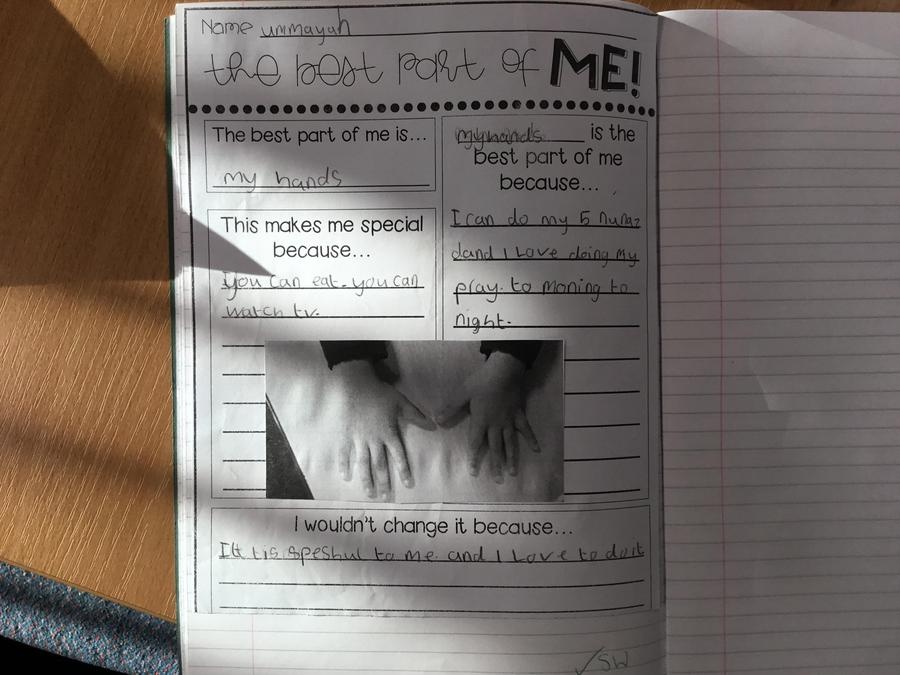 Name ummayah
the best part of ME!
The best part of me is...
my hands
This makes me special
because...
You can eat. you can
watch tv.
my hands is the
best part of me
because...
I can do my 5 numaz
dand I Love doing my
pray. to moning to
night.
I wouldn't change it because...
tis speshul to me. and I Love to do it
✓SW